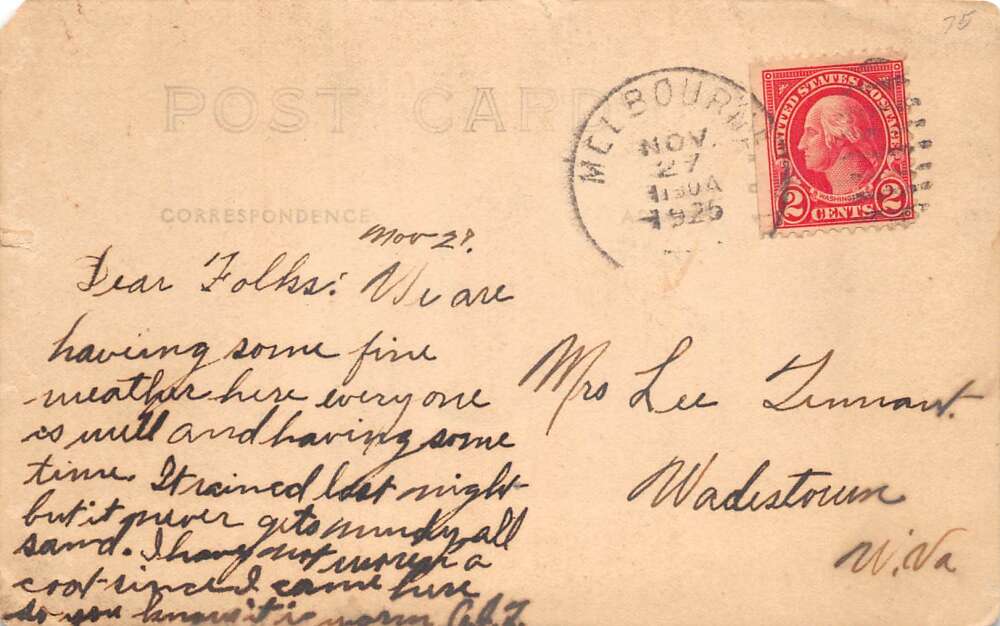 75
POST CARD
MELBOURNE
NOV.
27
1130A
1925
UNITED STATES POSTAGE
WASHINGTON
2 CENTS 2
CORRESPONDENCE
Nov 27.
Dear Folks: We are
having some fine
weather here everyone
is well and having some
time. It rained last night
but it never gets muddy all
sand. I have not worn a
coat since I came here
so you know it is warm
Mrs Lee Tennant.
Wadestown
W. Va